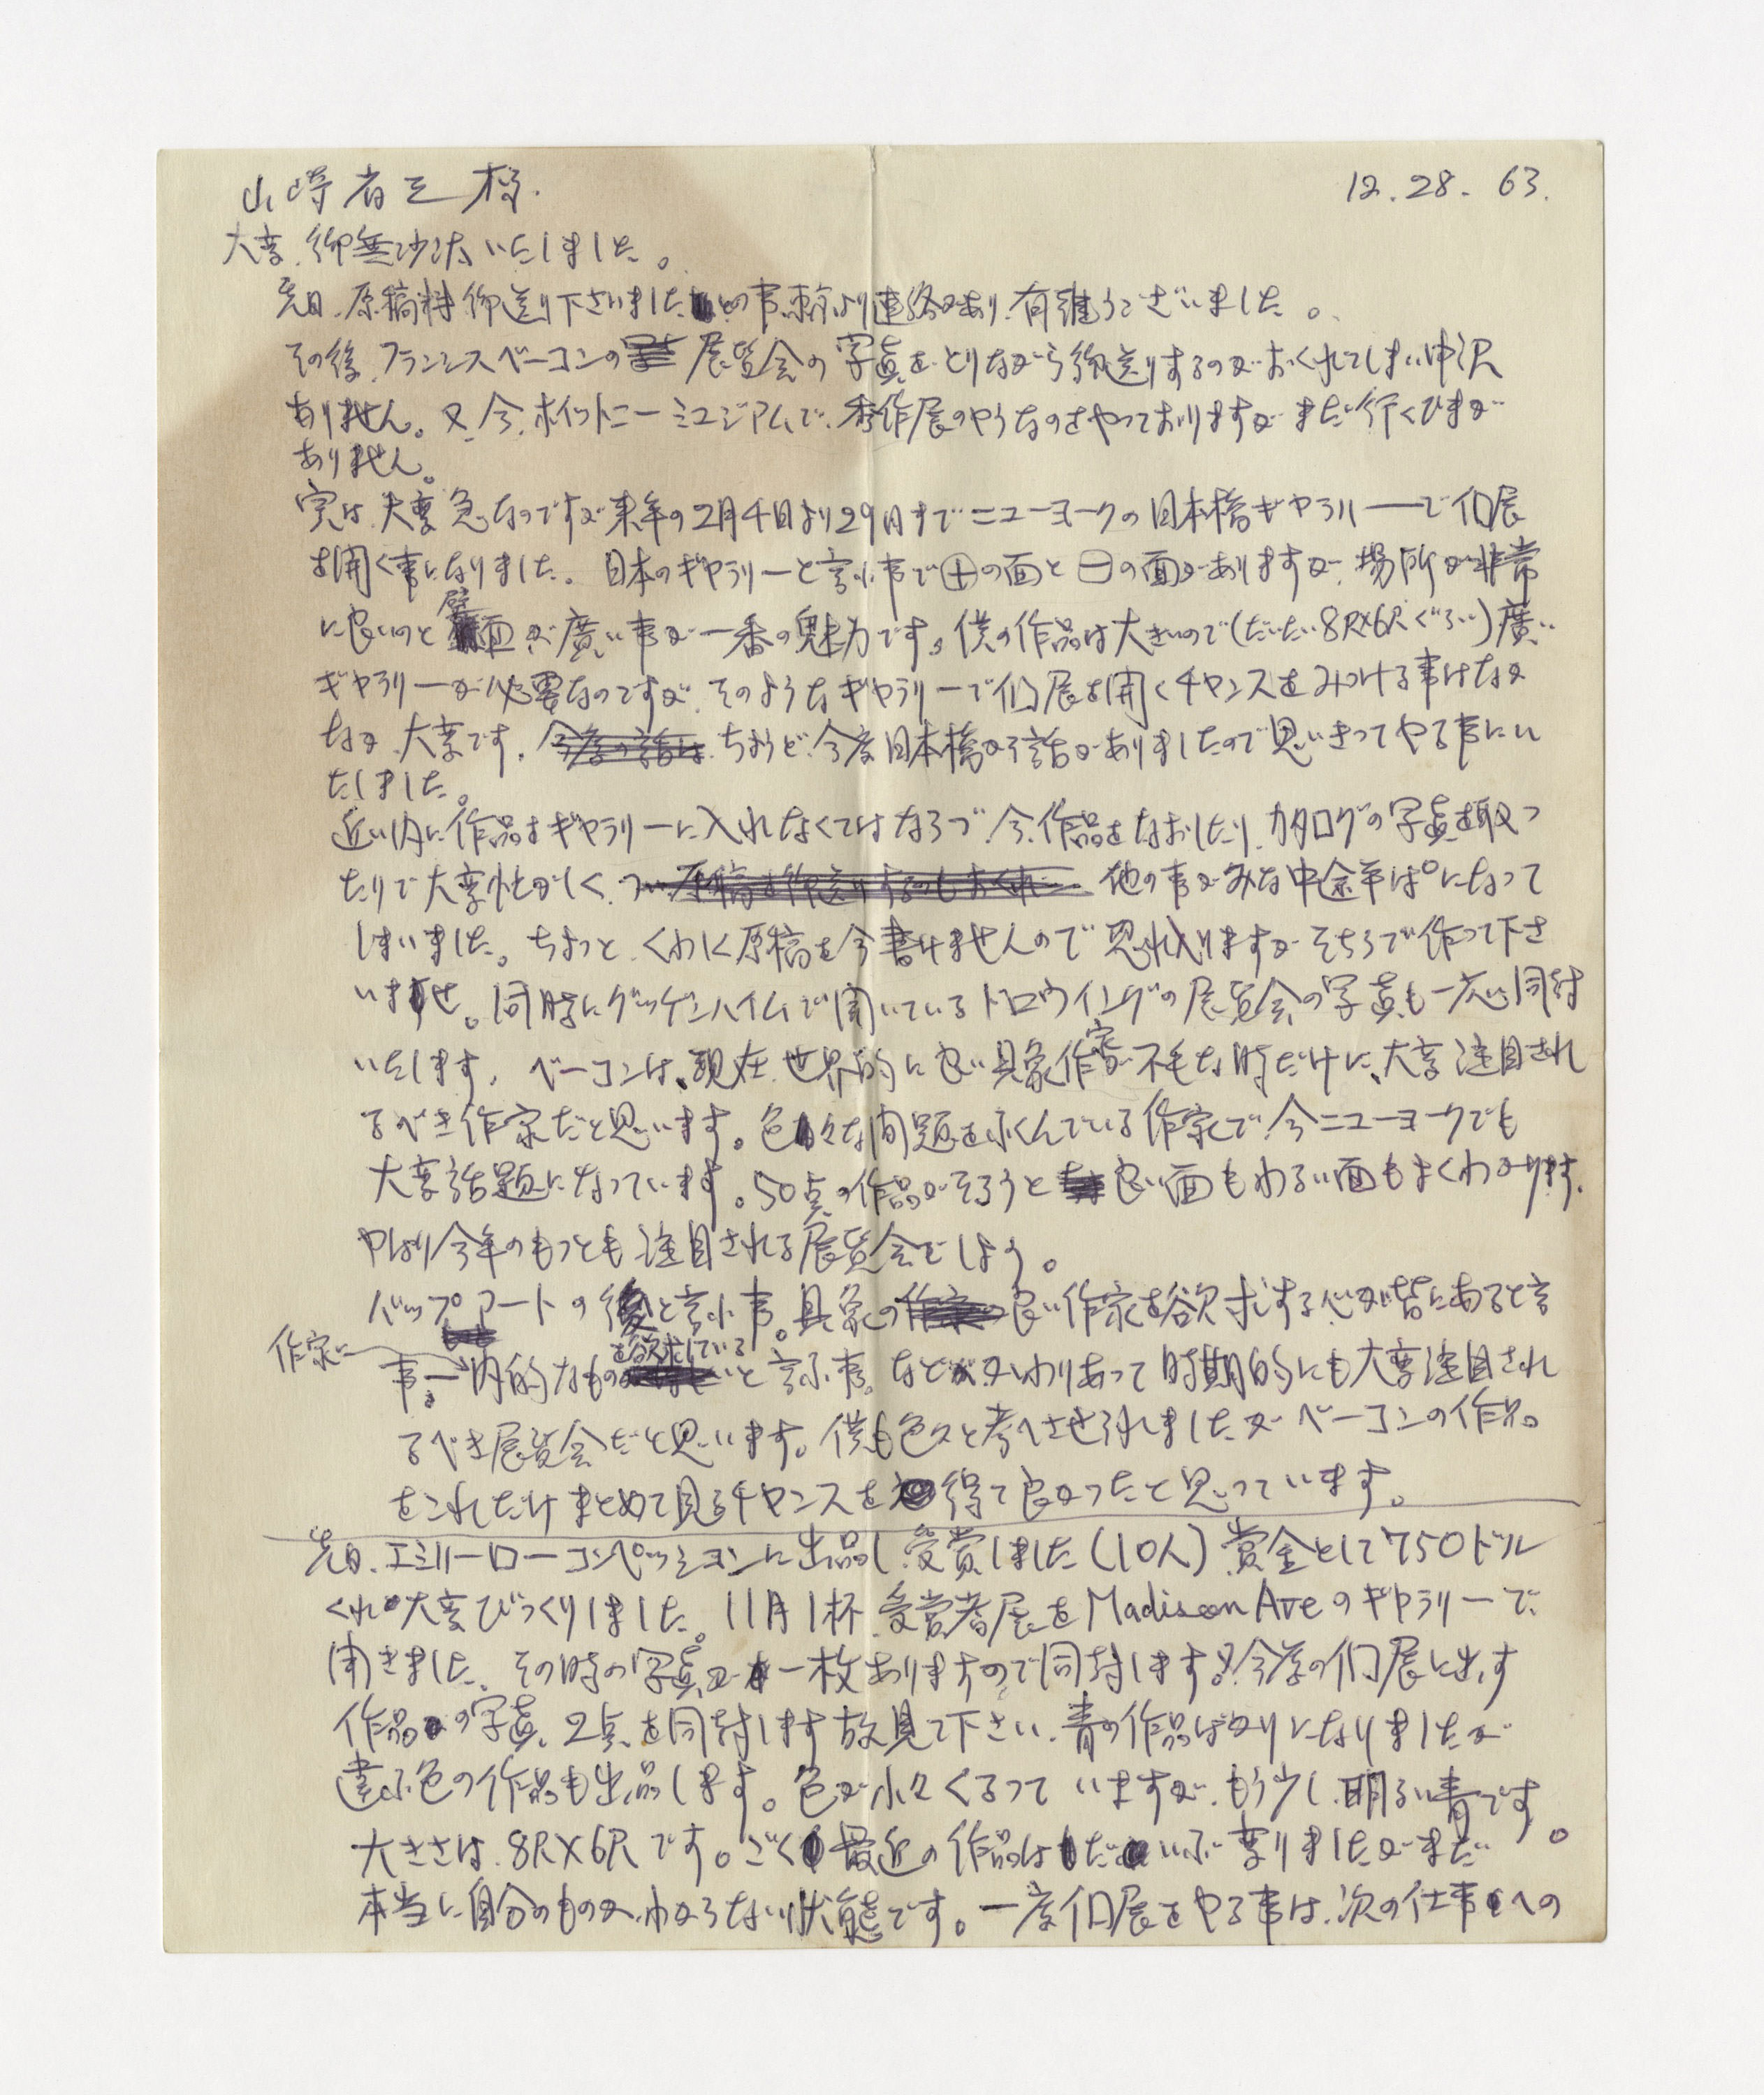 山崎省三様. 12.28.63.
大変.御無沙汰いたしました。
先日.原稿料御送り下さいましたとの事東京より連絡があり.有難うございました。
その後.フランシスベーコンの展覧会の写真をとりながら御送りするのがおくれてしまい申訳
ありません。又.今.ホイットニーミュジアムで.秀作展のやうなのをやっておりますがまだ行くひまが
ありません。
実は.大変急なのですが来年の2月4日より29日までニューヨークの日本橋ギャラリーで個展
を開く事になりました。日本のギャラリーと言ふ事で⊕の面と⊖の面がありますが.場所が非常
に良いのと壁面が廣い事が一番の魅力です。僕の作品は大きいので(だいたい8尺×6尺ぐらい)廣い
ギャラリーが必要なのですが.そのようなギャラリーで個展を開くチャンスをみつける事はなか
なか.大変です.ちょうど.今度日本橋から話がありましたので思いきってやる事にい
たしました。
近い内に作品をギャラリーに入れなくてはならづ.今.作品をなおしたり.カタログの写真を取っ
たりで大変忙がしく.他の事がみな中途半ぱになって
しまいました。ちょっと.くわしく原稿を今書けませんので恐れ入りますがそちらで作って下さ
いませ。同時にグッゲンハイムで開いているドロウイングの展覧会の写真も一応同封
いたします.ベーコンは、現在.世界的に良い具象作家が不毛な時だけに、大変注目され
るべき作家だと思います。色々な問題をふくんでいる作家で.今ニューヨークでも
大変話題になっています。50点の作品がそろうと良い面もわるい面もよくわかります.
やはり今年のもっとも注目される展覧会でしょう。
パップアートの後と言ふ事。具象の良い作家を欲求する心が皆にあると言
事。作家に内的なものを欲求していると言ふ事。などがかかわりあって時期的にも大変注目され
るべき展覧会だと思います。僕も色々と考へさせられましたがベーコンの作品
をこれだけまとめて見るチャンスを得て良かったと思っています。
先日.エミリーローコンペッションに出品し.受賞しました(10人)賞金として750ドル
くれ大変びっくりしました。11月1杯.受賞者展をMadison Aveのギャラリーで
開きました.その時の写真が一枚ありますので同封します。今度の個展に出す
作品の写真.2点を同封します故見て下さい.青の作品ばかりになりましたが
違ふ色の作品も出品します。色が少々くるっていますが.もう少し.明るい青です。
大きさは.8尺×6尺です。ごく最近の作品はだいぶ変りましたがまだ
本当に自分のものかわからない状態です。一度個展をやる事は.次の仕事への